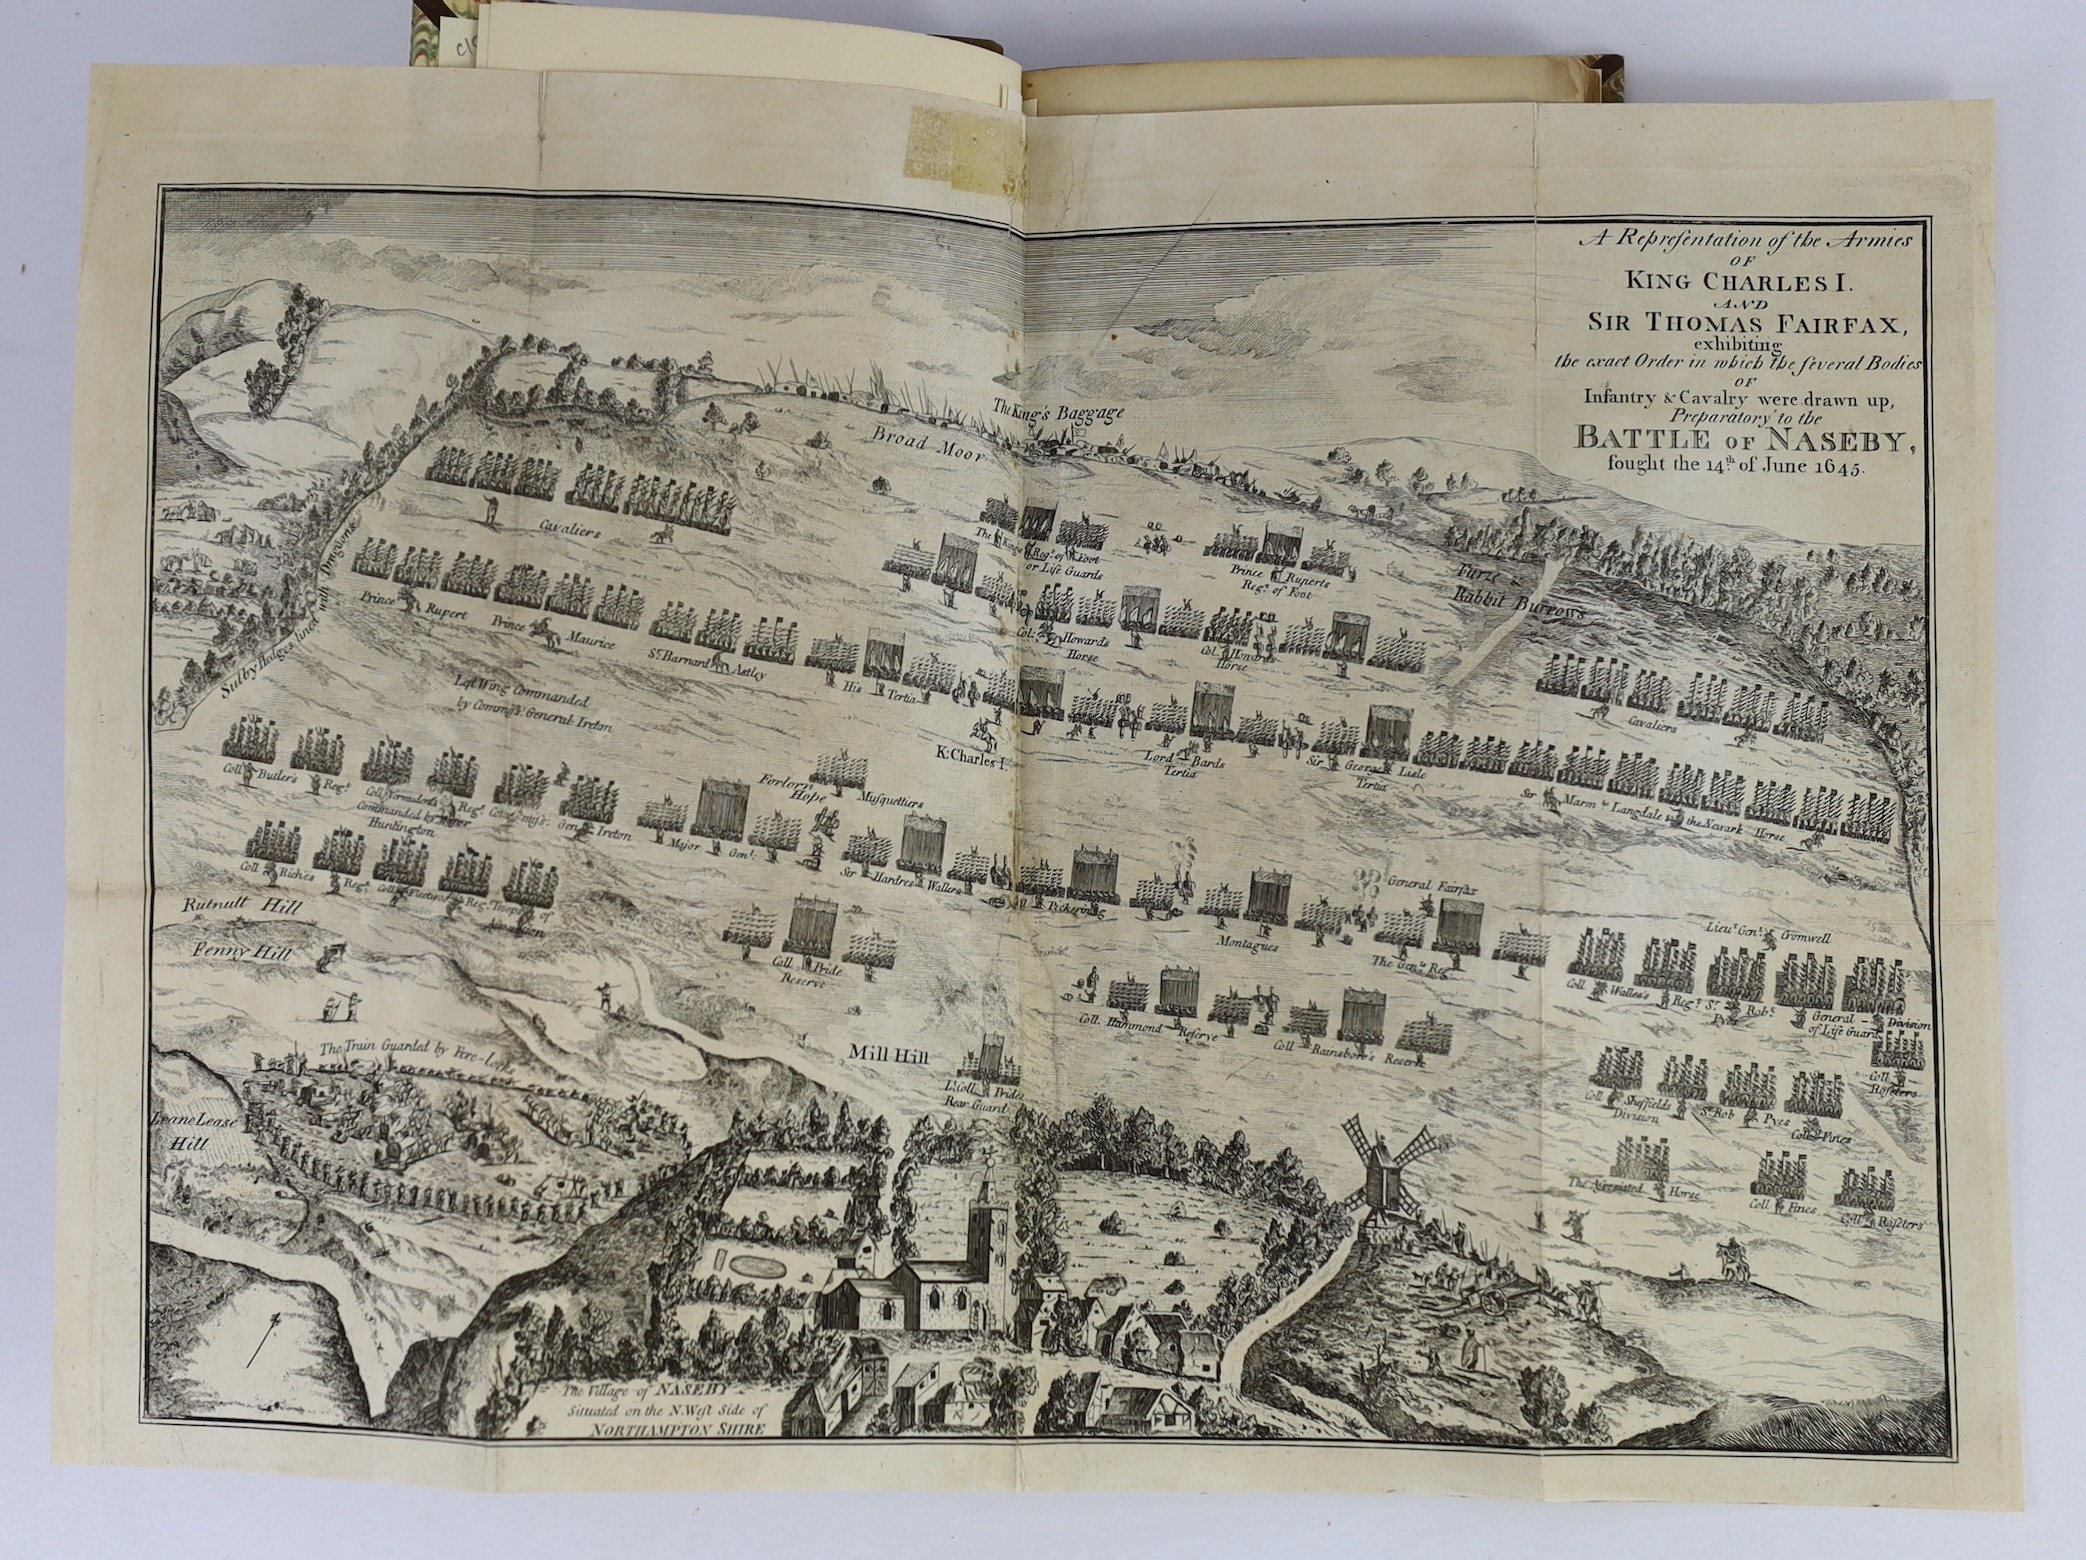 A Representation of the Armies
OF
KING CHARLES I.
AND
SIR THOMAS FAIRFAX,
exhibiting
the exact Order in which the several Bodies
OF
Infantry & Cavalry were drawn up,
Preparatory to the
BATTLE OF NASEBY,
fought the 14th of June 1645.
The King's Baggage
Broad Moor
Cavaliers
The Kings Regt. of Foot
or Life Guards
Prince Ruperts
Regt. of Foot
Furze &
Rabbit Burrows
Sulby Hedges lined with Dragoons
Prince Rupert
Prince Maurice
Sr. Barnard Astley
His Tertia
Col: Howards
Horse
Col. Howards
Horse
Cavaliers
Left Wing Commanded
by Commy. General Ireton
K. Charles I.
Lord Bards
Tertia
Sir George Lisle
Tertia
Sir Marm: Langdale the Newark Horse
Forlorn
Hope
Musquettiers
Coll Butler's Regt.
Coll Vermuden's Regt.
Commanded by Major
Huntington
Commiss. Genl. Ireton
Major Genl.
Sir Hardres Wallers
Pickering
Montagues
General Fairfax
The Genls. Reg.
Lieut. Genl. Cromwell
Coll Riches Regt.
Coll Fleetwood's Regt.
Troops of
Association
Coll. Pride
Reserve
Coll. Walley's Regt.
Sr. Robt.
Pyes
General Division
of Life Guard
Coll. Hammond Reserve
Coll Rainsboro's Reserve
Coll
Roseters
Coll Sheffields
Division
Sr. Rob Pyes
Coll Fines
The Associated Horse
Coll Fines
Coll Roseters
Rutnutt Hill
Fenny Hill
The Train Guarded by Fire-Locks
Leane Lease
Hill
Mill Hill
Lt. Coll. Prides
Rear Guard
The Village of NASEBY
Situated on the N. West Side of
NORTHAMPTON SHIRE